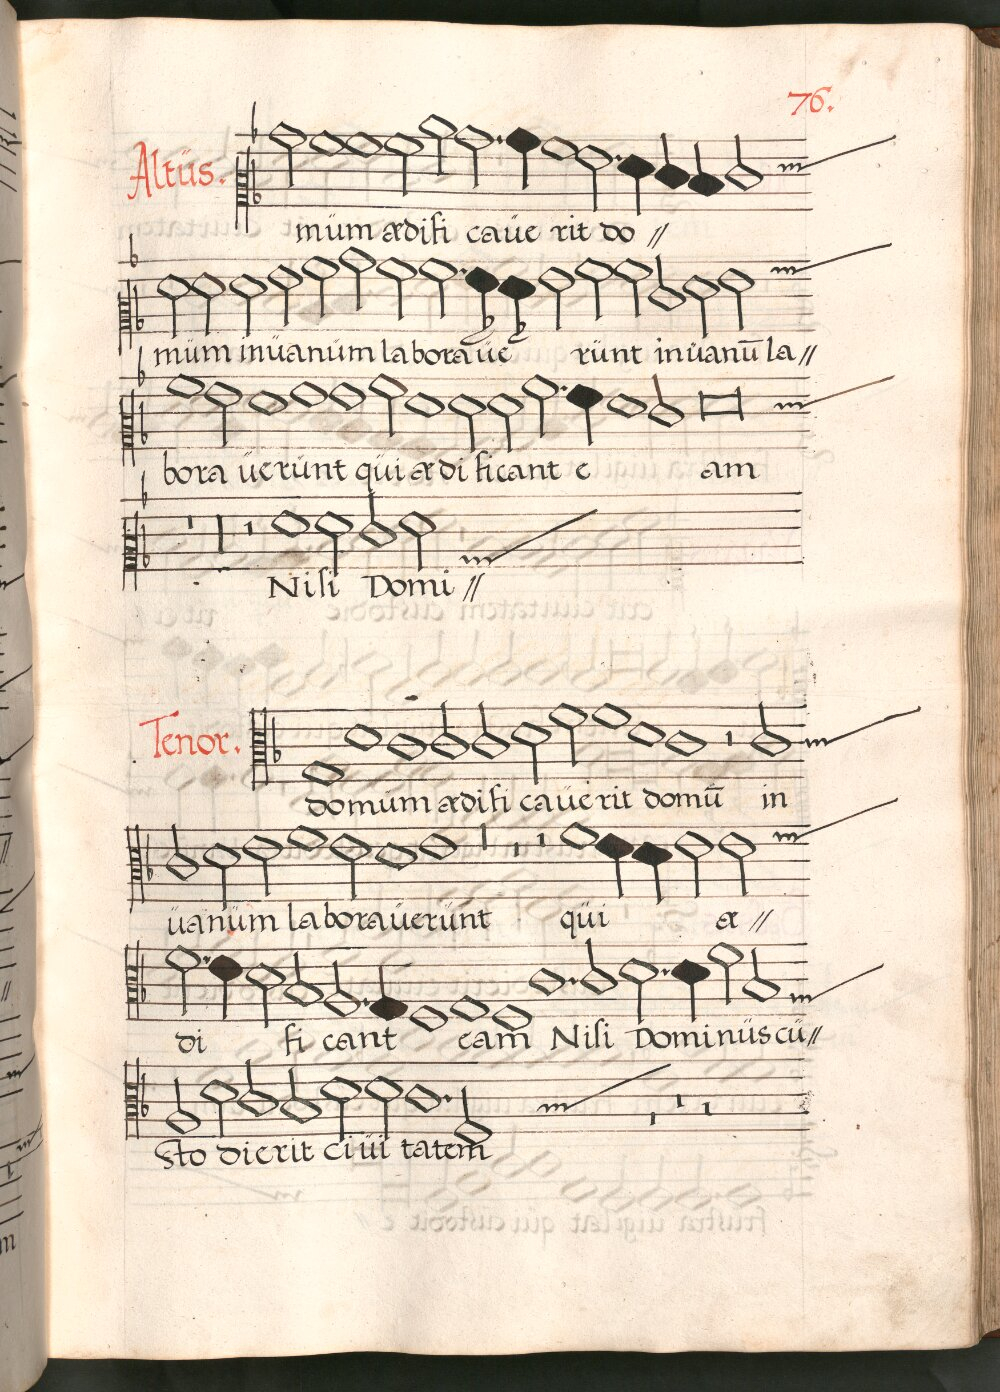 76.
Altüs.
müm ædifi caüe rit do //
müm inüanüm laboraüe rünt inüanū la //
bora üerünt qüi ædificant e am
Nisi Domi //
Tenor.
domüm ædifi caüerit domū in
üanüm laboraüerünt qüi æ //
di fi cant eam Nisi Dominüs cū //
sto dierit ciüi tatem